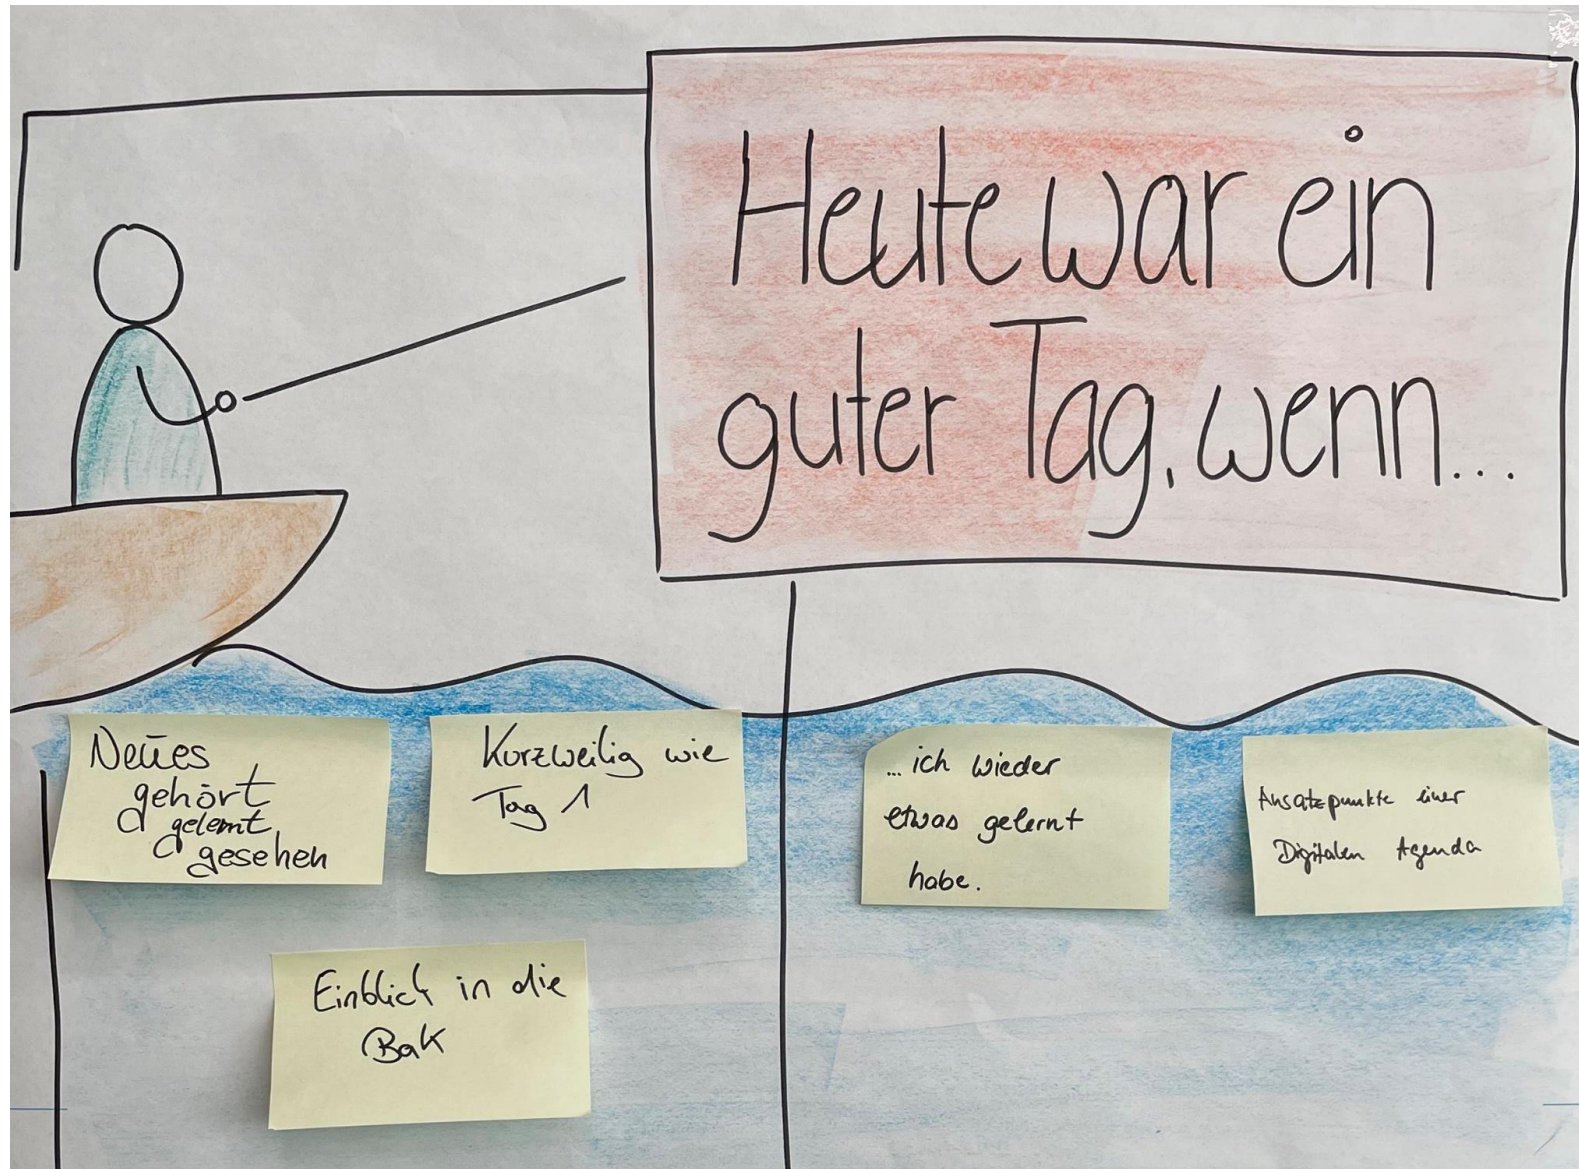 Heute war ein
guter Tag, wenn...
Neues
gehört
gelernt
gesehen
Kurzweilig wie
Tag 1
Einblick in die
BaK
... ich wieder
etwas gelernt
habe.
Ansatzpunkte einer
Digitalen Agenda